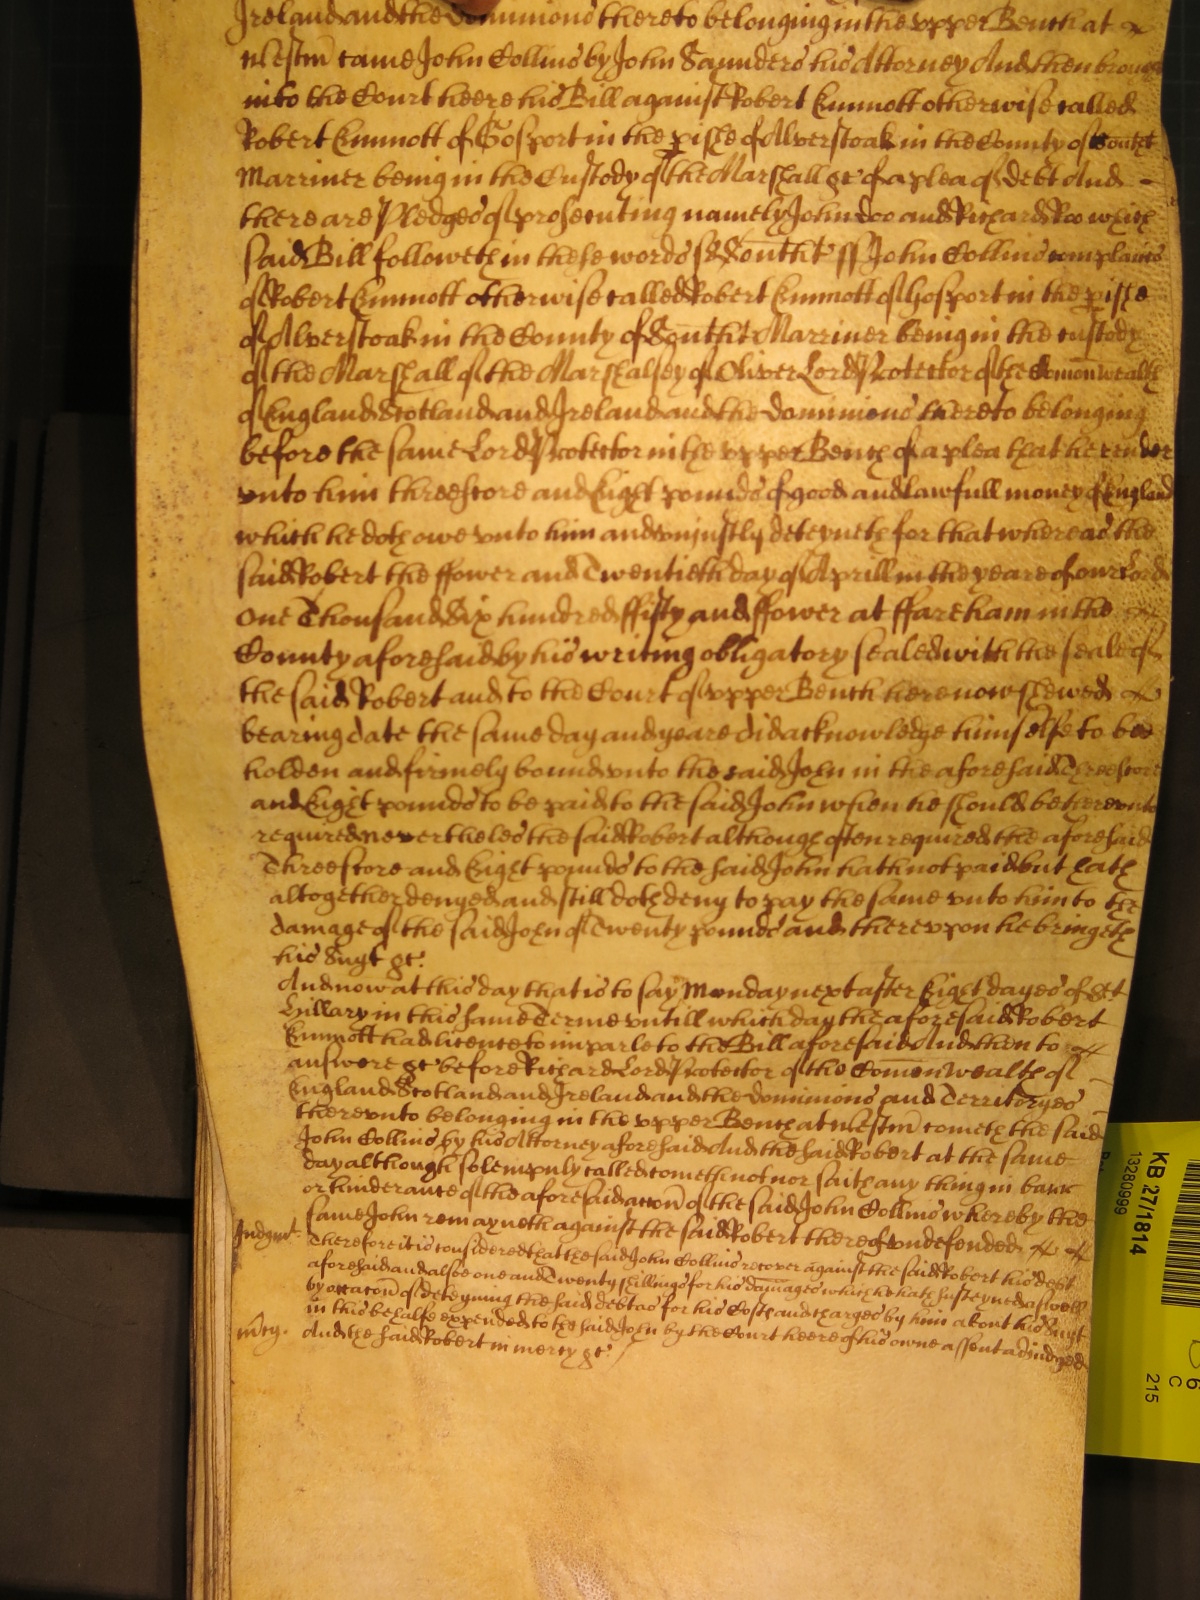 Ireland and the Dominions thereto belonging in the upper Bench at
Westm̄ came John Collins by John Saunders his Attorney And then brought
into the Court heere his Bill against Robert Emmott otherwise called
Robert Emmott of Gosport in the pishe of Alverstoak in the County of Southt
Marriner being in the Custody of the Marshall &c of a plea of debt And
there are Pledges of prosecuting namely John doo and Richard Roo which
said Bill followeth in these words ss Southt ss John Collins complaines
of Robert Emmott otherwise called Robert Emmott of Gosport in the pishe
of Alverstoak in the County of Southt Marriner being in the custody
of the Marshall of the Marshalsey of Oliver Lord Protector of the Comōnwealth
of England Scotland and Ireland and the dominions thereto belonging
before the same Lord Protector in the upper Bench of a plea that he render
vnto him threescore and Eight pounds of good and lawfull money of England
which he doth owe vnto him and vniustly deteyneth for that whereas the
said Robert the ffower and Twentieth day of Aprill in the yeare of our Lord
One Thousand Six hundred ffifty and ffower at ffareham in the
County aforesaid by his writing obligatory sealed with the seale of
the said Robert and to the Court of vpper Bench here now shewed
bearing date the same day and yeare did acknowledge himselfe to bee
holden and firmely bound vnto the said John in the aforesaid Threescore
and Eight pounds to be paid to the said John when he should be therevnto
required nevertheles the said Robert although often required the aforesaid
Threescore and Eight pounds to the said John hath not paid but hath
altogether denyed and still doth deny to pay the same vnto him to the
damage of the said John of Twenty pounds and therevpon he bringeth
his Suyt &c.
And now at this day that is to say Monday next after Eight dayes of St
Hillary in this same Terme vntill which day the aforesaid Robert
Emmott had licence to imparle to the Bill aforesaid And then to
answere &c before Richard Lord Protector of the Comōn Wealth of
England Scotland and Ireland and the Dominions and Territoryes
therevnto belonging in the vpper Bench at Westm̄ cometh the said
John Collins by his Attorney aforesaid And the said Robert at the same
day although solempnly called cometh not nor saith any thing in barr
or hinderance of the aforesaid accon̄ of the said John Collins whereby the
same John remayneth against the said Robert thereof vndefended
Iudgmt. Therefore it is considered that the said John Collins recover against the said Robert his debt
aforesaid and alsoe one and Twenty shillings for his damages which he hath susteyned aswell
by occacon̄ of deteyning the said debt as for his Costs and charges by him about his Suyt
in this behalfe expended to the said John by the Court heere of his owne assent adiudged
m̄cy. And the said Robert in mercy &c.
KB 27/1814
13280999
C
6
215